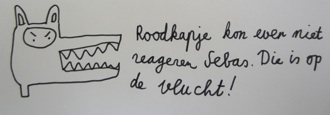 Roodkapje kon even niet
reageren Sebas. Die is op
de vlucht!